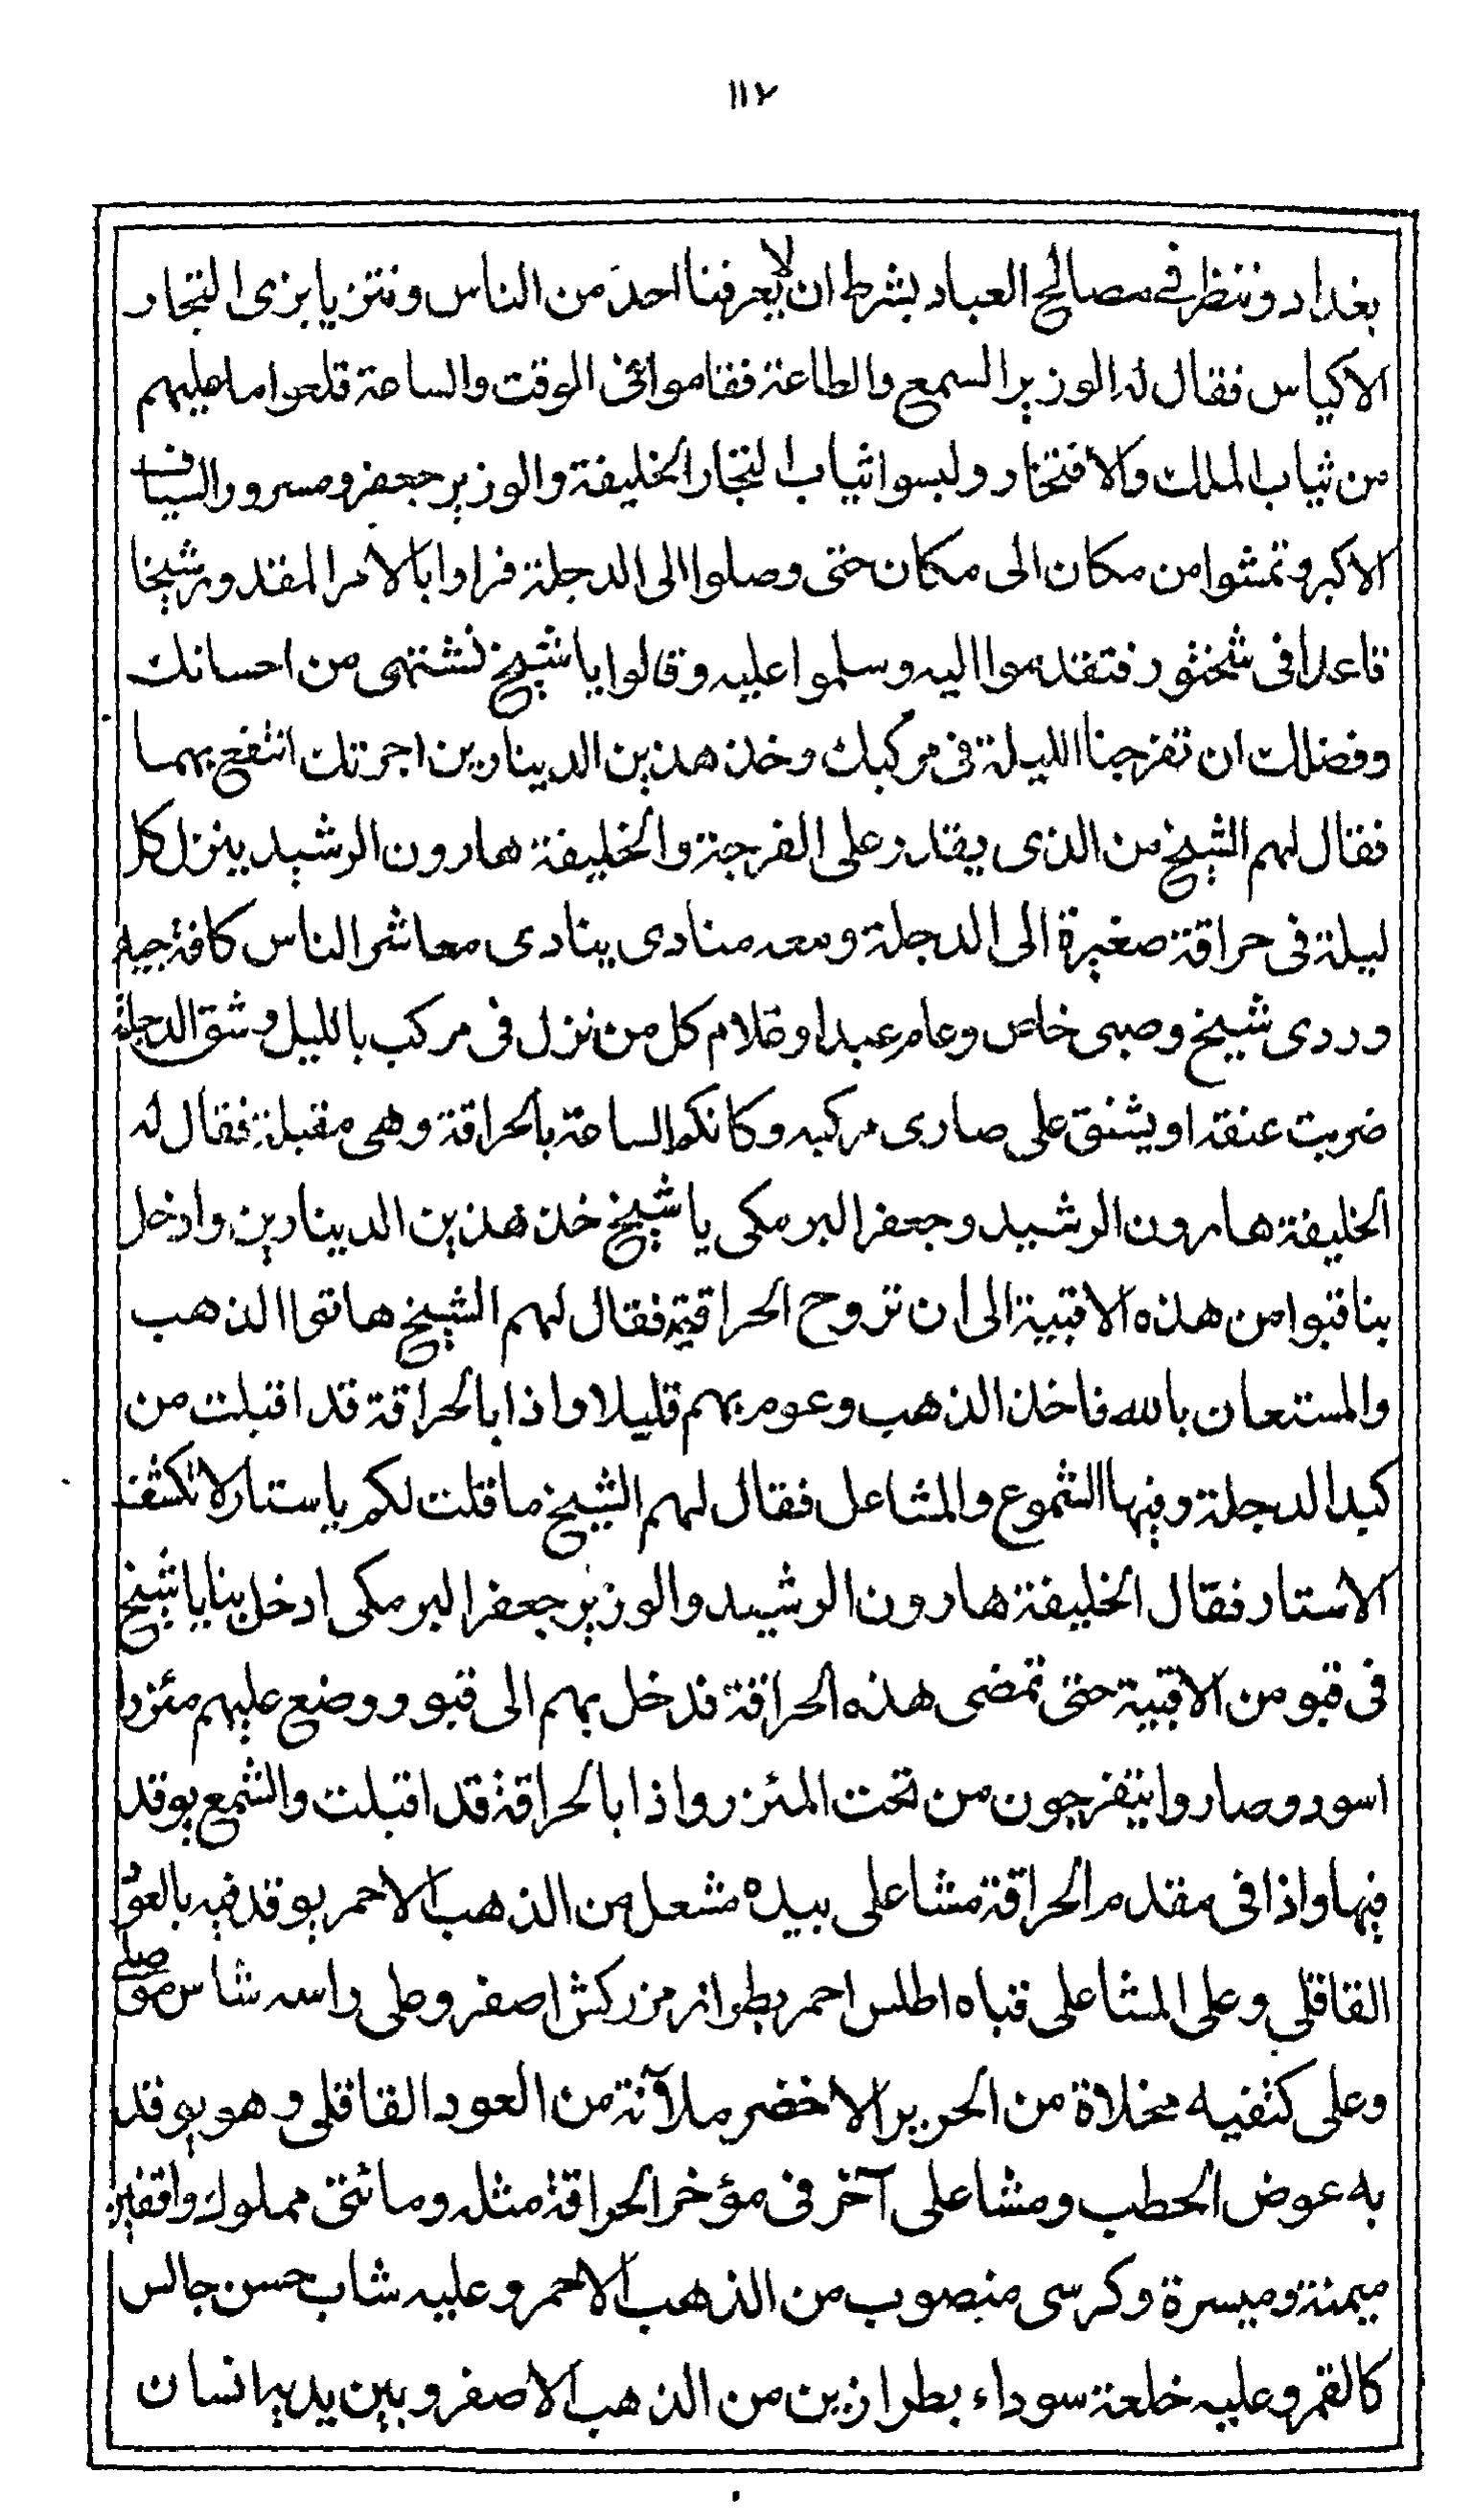 ١١٢
بغداد وننظر فى مصالح العباد بشرط ان لا يعرفنا احد من الناس ونتزيا بزى التجار
الاكياس فقال له الوزير السمع والطاعة فقاموا فى الوقت والساعة قلعوا ما عليهم
من ثياب الملك والافتخار ولبسوا ثياب التجار الخليفة والوزير جعفر ومسرور السياف
الاكبر وتمشوا من مكان الى مكان حتى وصلوا الى الدجلة فراوا بالامر المقدور شيخا
قاعدا فى شختور فتقدموا اليه وسلموا عليه وقالوا يا شيخ نشتهى من احسانك
وفضلك ان تفرجنا الليلة فى مركبك وخذ هذين الدينارين اجرتك انتفع بهما
فقال لهم الشيخ من الذى يقدر على الفرجة والخليفة هارون الرشيد ينزل كل
ليلة فى حراقة صغيرة الى الدجلة ومعه منادى ينادى معاشر الناس كافة جيد
وردى شيخ وصبى خاص وعام عبد او غلام كل من نزل فى مركب بالليل وشق الدجلة
ضربت عنقه او يشنق على صارى مركبه وكانكم الساعة بالحراقة وهى مقبلة فقال له
الخليفة هارون الرشيد وجعفر البرمكى يا شيخ خذ هذين الدينارين وادخل
بنا قبوا من هذه الاقبية الى ان تروح الحراقية فقال لهم الشيخ هاتوا الذهب
والمستعان بالله فاخذ الذهب وعوم بهم قليلا واذا بالحراقة قد اقبلت من
كبد الدجلة وفيها الشموع والمشاعل فقال لهم الشيخ ما قلت لكم يا ستار لا تكشف
الاستار فقال الخليفة هارون الرشيد والوزير جعفر البرمكى ادخل بنا يا شيخ
فى قبو من الاقبية حتى تمضى هذه الحراقة فدخل بهم الى قبو ووضع عليهم مئزرا
اسود وصاروا يتفرجون من تحت المئزر واذا بالحراقة قد اقبلت والشمع يوقد
فيها واذا فى مقدم الحراقة مشاعلى بيده مشعل من الذهب الاحمر يوقد فيه بالعود
القاقلى وعلى المشاعلى قباه اطلس احمر بطراز مزركش اصفر وعلى راسه شاس موصلى
وعلى كتفيه مخلاة من الحرير الاخضر ملآنة من العود القاقلى وهو يوقد
به عوض الحطب ومشاعلى آخر فى مؤخر الحراقة مثله ومائتى مملوك واقفين
ميمنة وميسرة وكرسى منصوب من الذهب الاحمر وعليه شاب حسن جالس
كالقمر وعليه خلعة سوداء بطرازين من الذهب الاصفر وبين يديه انسان